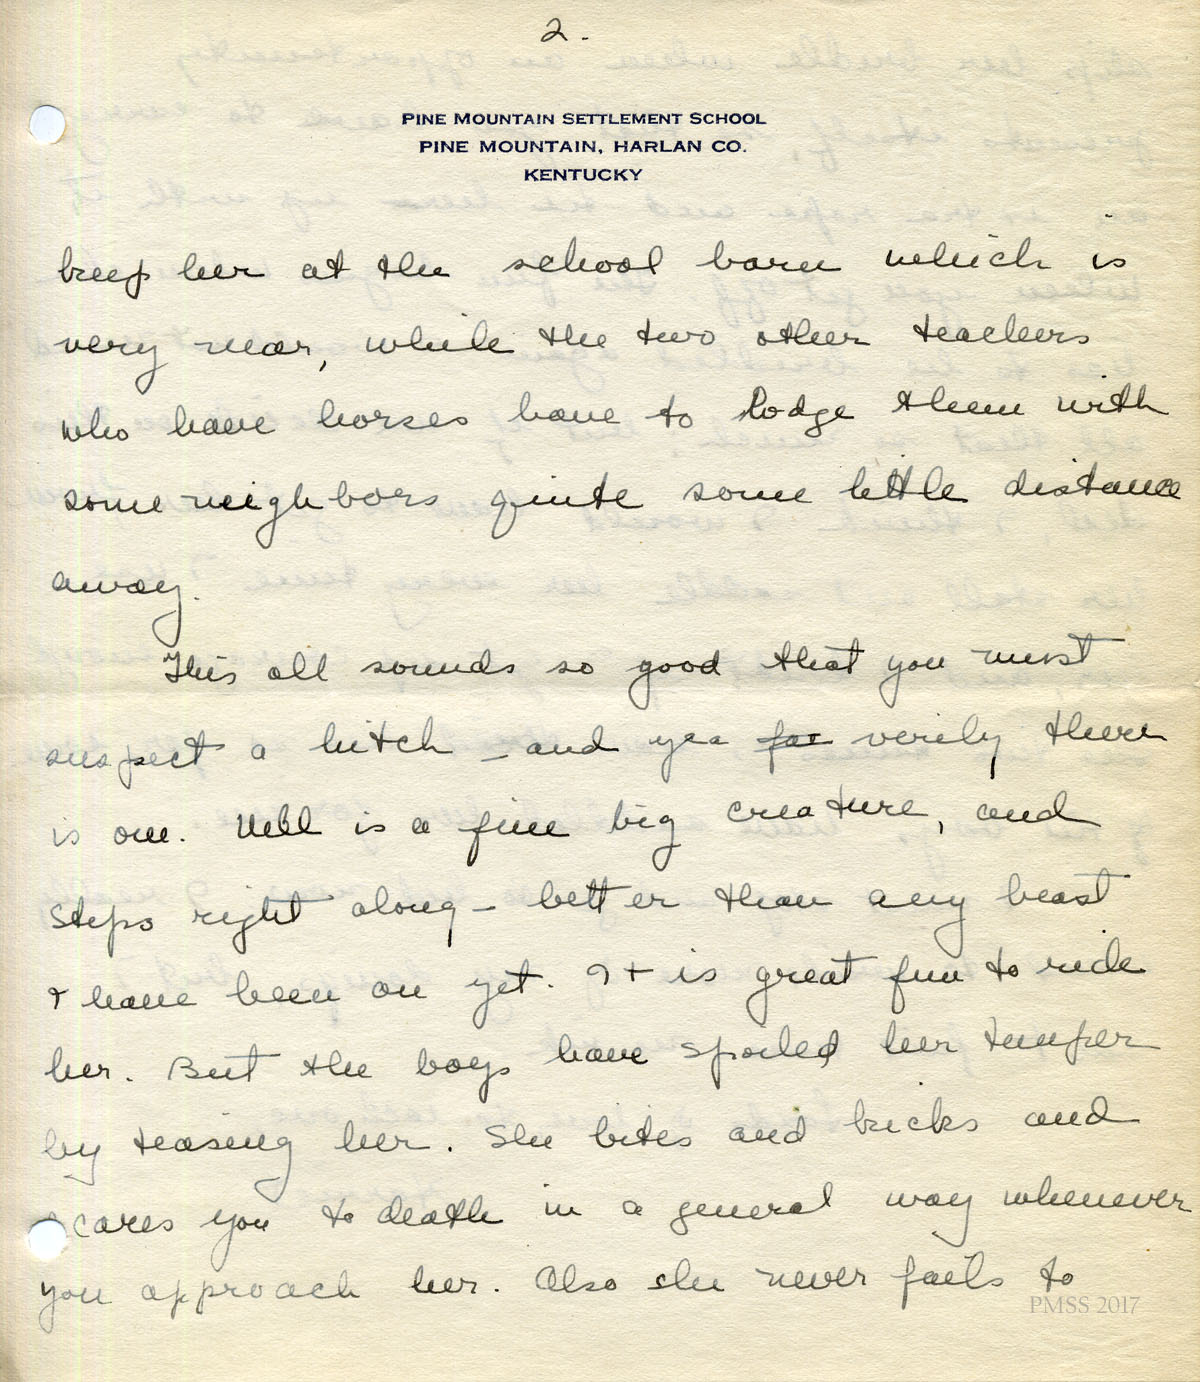 2.
PINE MOUNTAIN SETTLEMENT SCHOOL
PINE MOUNTAIN, HARLAN CO.
KENTUCKY
keep her at the school barn which is
very near, while the two other teachers
who have horses have to lodge them with
some neighbors quite some little distance
away.
This all sounds so good that you must
suspect a hitch – and yea for verily there
is one. Nell is a fine big creature, and
steps right along – better than any beast
I have been on yet. It is great fun to ride
her. But the boys have spoiled her temper
by teasing her. She bites and kicks and
scares you to death in a general way whenever
you approach her. Also she never fails to
PMSS 2017